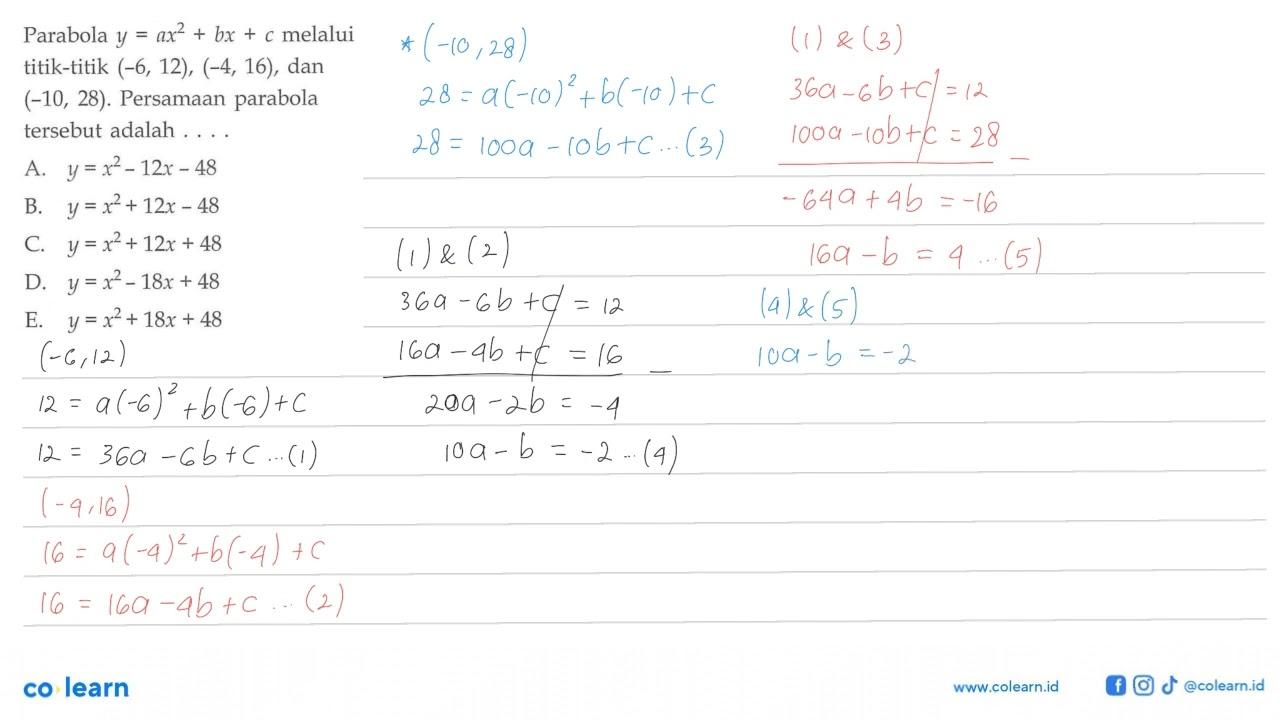 Parabola y = ax² + bx + c melalui
titik-titik (–6, 12), (–4, 16), dan
(–10, 28). Persamaan parabola
tersebut adalah . . . .
A. y = x² – 12x – 48
B. y = x² + 12x – 48
C. y = x² + 12x + 48
D. y = x² – 18x + 48
E. y = x² + 18x + 48
(-6,12)
12 = a(-6)² + b(-6) + c
12 = 36a - 6b + c ...(1)
(-4,16)
16 = a(-4)² + b(-4) + c
16 = 16a - 4b + c ...(2)
* (-10,28)
28 = a(-10)² + b(-10) + c
28 = 100a - 10b + c ...(3)
(1) & (2)
36a - 6b + c = 12
16a - 4b + c = 16 –
20a - 2b = -4
10a - b = -2 ...(4)
(1) & (3)
36a - 6b + c = 12
100a - 10b + c = 28 –
-64a + 4b = -16
16a - b = 4 ...(5)
(4) & (5)
10a - b = -2
co learn
www.colearn.id
@colearn.id